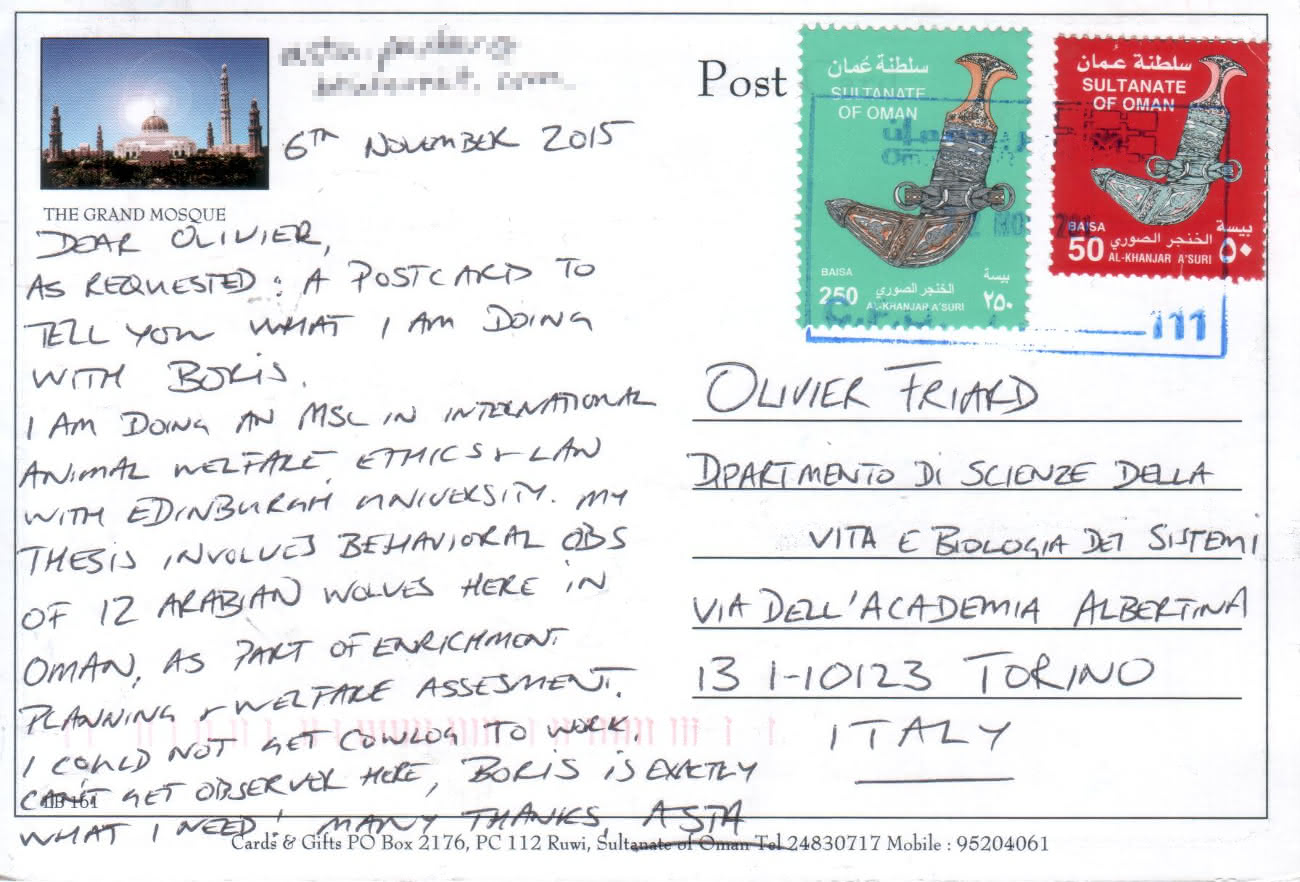 THE GRAND MOSQUE
6TH NOVEMBER 2015
DEAR OLIVIER,
AS REQUESTED: A POSTCARD TO
TELL YOU WHAT I AM DOING
WITH BORIS.
I AM DOING AN MSC IN INTERNATIONAL
ANIMAL WELFARE, ETHICS & LAW
WITH EDINBURGH UNIVERSITY. MY
THESIS INVOLVES BEHAVIORAL OBS
OF 12 ARABIAN WOLVES HERE IN
OMAN, AS PART OF ENRICHMENT
PLANNING & WELFARE ASSESMENT.
I COULD NOT GET COWLOG TO WORK,
CAN'T GET OBSERVER HERE, BORIS IS EXACTLY
WHAT I NEED! MANY THANKS, ASTA
161
Post
سلطنة عُمان
SULTANATE
OF OMAN
BAISA
بيسة
250
الخنجر الصوري
٢٥٠
AL-KHANJAR A'SURI
سلطنة عُمان
SULTANATE
OF OMAN
BAISA
بيسة
50
الخنجر الصوري
٥٠
AL-KHANJAR A'SURI
111
OLIVIER FRIARD
DPARTIMENTO DI SCIENZE DELLA
VITA E BIOLOGIA DEI SISTEMI
VIA DELL'ACADEMIA ALBERTINA
13 I-10123 TORINO
ITALY
Cards & Gifts PO Box 2176, PC 112 Ruwi, Sultanate of Oman Tel 24830717 Mobile : 95204061